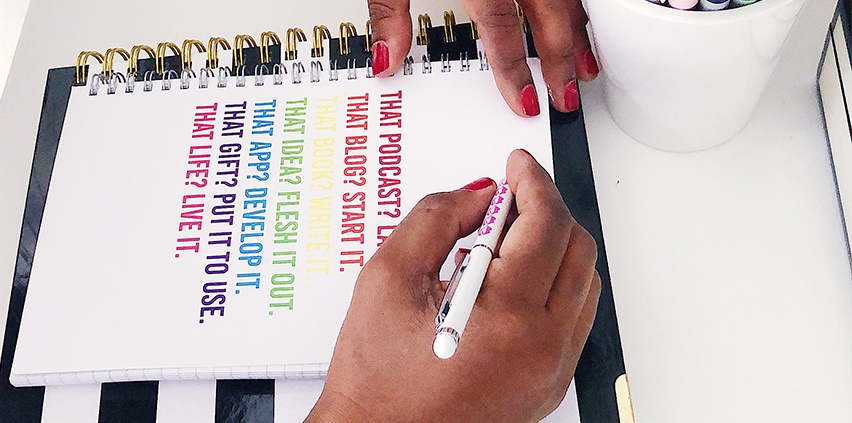 THAT PODCAST?
THAT BLOG? START IT.
THAT BOOK? WRITE IT.
THAT IDEA? FLESH IT OUT.
THAT APP? DEVELOP IT.
THAT GIFT? PUT IT TO USE.
THAT LIFE? LIVE IT.